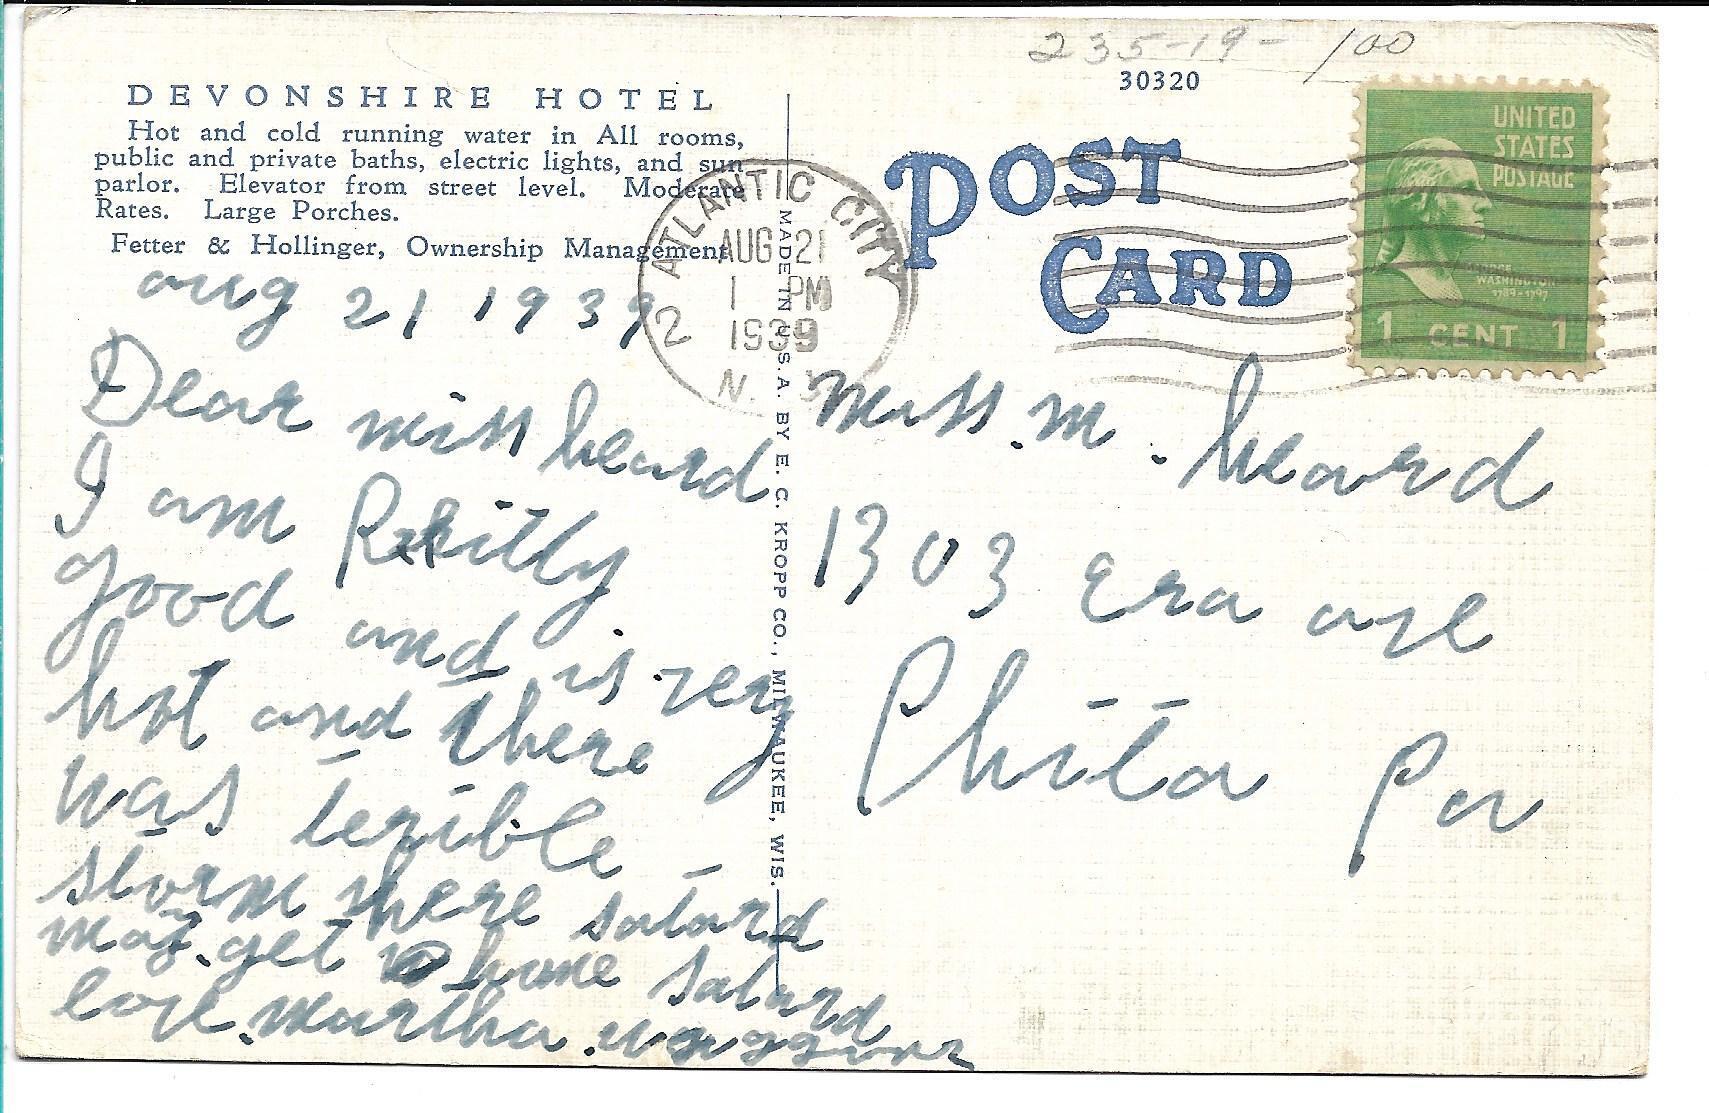 235-19- 100
30320
DEVONSHIRE HOTEL
Hot and cold running water in All rooms,
public and private baths, electric lights, and sun
parlor. Elevator from street level. Moderate
Rates. Large Porches.
Fetter & Hollinger, Ownership Management
POST
CARD
UNITED
STATES
POSTAGE
GEORGE
WASHINGTON
1789-1797
1 CENT 1
ATLANTIC CITY
AUG 21
1 PM
1939
2 N.
MADE IN U.S.A. BY E. C. KROPP CO., MILWAUKEE, WIS.
aug 21 1939
Dear miss heard
I am
good and is very
hot and there
was terible
storm here satard
may get home satard
love Martha
miss. m. heard
1303 Era ave
Phila Pa